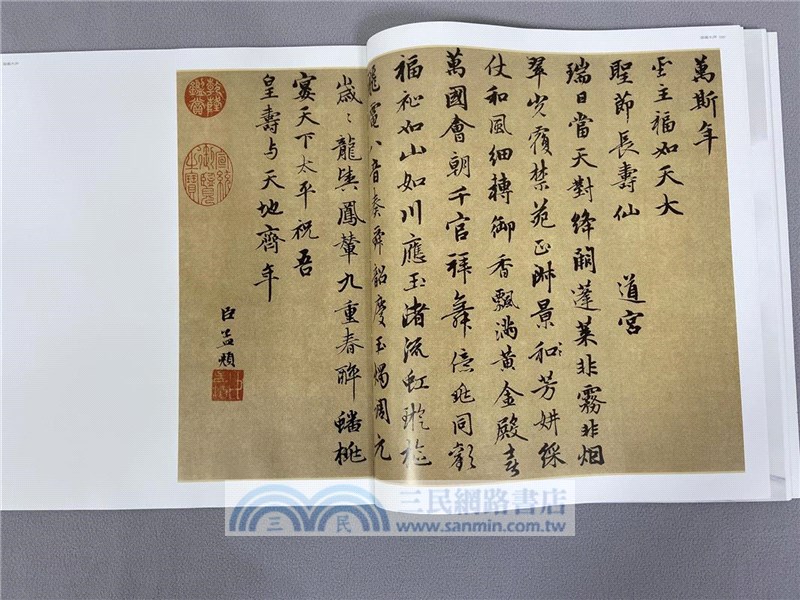 萬斯年
主福如天大
聖節長壽仙 道宮
瑞日當天對絳闕蓬萊非霧非烟
翠光覆禁苑正淑景和芳妍綵
仗和風細轉御香飄滿黃金殿喜
萬國會朝千官拜舞億兆同歡
福祉如山如川應玉渚流虹璇樞
飛電八音奏舜韶慶玉燭調元
歲〻龍輿鳳輦九重春醉蟠桃
宴天下太平祝吾
皇壽与天地齊年
臣孟頫
乾隆鑑賞
宣統御覽之寶
三民網路書店
三民
www.sanmin.com.tw